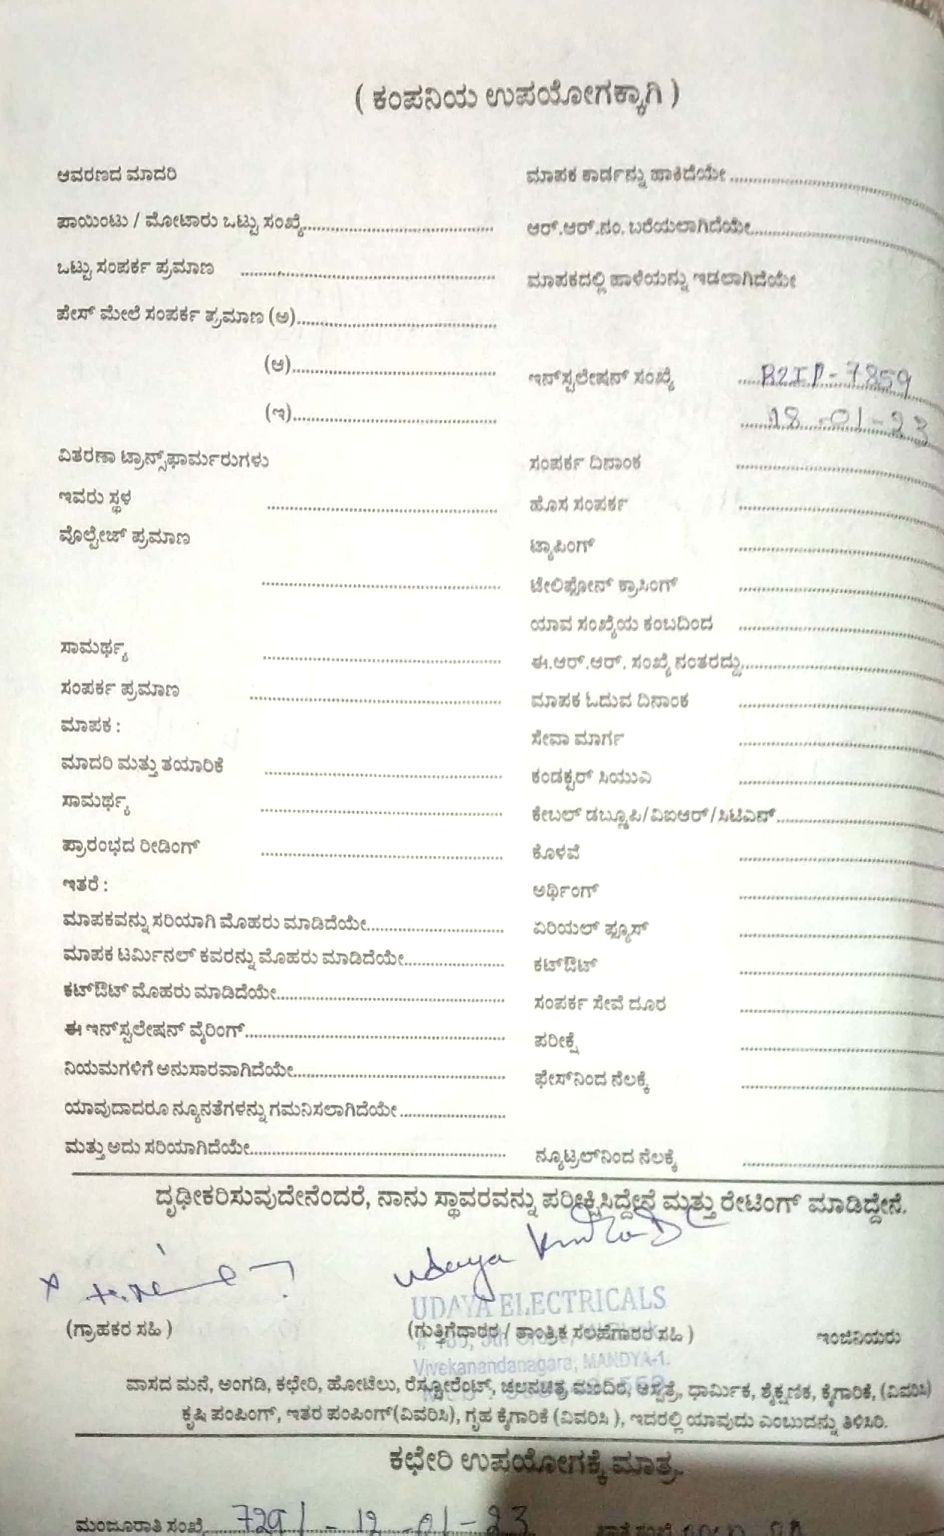 ( ಕಂಪನಿಯ ಉಪಯೋಗಕ್ಕಾಗಿ )
ಆವರಣದ ಮಾದರಿ
ಪಾಯಿಂಟು / ಮೋಟಾರು ಒಟ್ಟು ಸಂಖ್ಯೆ
ಒಟ್ಟು ಸಂಪರ್ಕ ಪ್ರಮಾಣ
ಪೇಸ್ ಮೇಲೆ ಸಂಪರ್ಕ ಪ್ರಮಾಣ (ಅ)
(ಆ)
(ಇ)
ವಿತರಣಾ ಟ್ರಾನ್ಸ್‌ಫಾರ್ಮರುಗಳು
ಇವರು ಸ್ಥಳ
ವೊಲ್ಟೇಜ್ ಪ್ರಮಾಣ
ಸಾಮರ್ಥ್ಯ
ಸಂಪರ್ಕ ಪ್ರಮಾಣ
ಮಾಪಕ :
ಮಾದರಿ ಮತ್ತು ತಯಾರಿಕೆ
ಸಾಮರ್ಥ್ಯ
ಪ್ರಾರಂಭದ ರೀಡಿಂಗ್
ಇತರೆ :
ಮಾಪಕವನ್ನು ಸರಿಯಾಗಿ ಮೊಹರು ಮಾಡಿದೆಯೇ
ಮಾಪಕ ಟರ್ಮಿನಲ್ ಕವರನ್ನು ಮೊಹರು ಮಾಡಿದೆಯೇ
ಕಟ್‌ಔಟ್ ಮೊಹರು ಮಾಡಿದೆಯೇ
ಈ ಇನ್‌ಸ್ಟಲೇಷನ್ ವೈರಿಂಗ್
ನಿಯಮಗಳಿಗೆ ಅನುಸಾರವಾಗಿದೆಯೇ
ಯಾವುದಾದರೂ ನ್ಯೂನತೆಗಳನ್ನು ಗಮನಿಸಲಾಗಿದೆಯೇ
ಮತ್ತು ಅದು ಸರಿಯಾಗಿದೆಯೇ
ಮಾಪಕ ಕಾರ್ಡನ್ನು ಹಾಕಿದೆಯೇ
ಆರ್.ಆರ್.ನಂ. ಬರೆಯಲಾಗಿದೆಯೇ
ಮಾಪಕದಲ್ಲಿ ಹಾಳೆಯನ್ನು ಇಡಲಾಗಿದೆಯೇ
ಇನ್‌ಸ್ಟಲೇಷನ್ ಸಂಖ್ಯೆ B2IP-7859
18-01-23
ಸಂಪರ್ಕ ದಿನಾಂಕ
ಹೊಸ ಸಂಪರ್ಕ
ಟ್ಯಾಪಿಂಗ್
ಟೇಲಿಫೋನ್ ಕ್ರಾಸಿಂಗ್
ಯಾವ ಸಂಖ್ಯೆಯ ಕಂಬದಿಂದ
ಈ.ಆರ್.ಆರ್. ಸಂಖ್ಯೆ ನಂತರದ್ದು
ಮಾಪಕ ಓದುವ ದಿನಾಂಕ
ಸೇವಾ ಮಾರ್ಗ
ಕಂಡಕ್ಟರ್ ಸಿಯುಎ
ಕೇಬಲ್ ಡಬ್ಲ್ಯೂಪಿ/ವಿಐಆರ್/ಸಿಟಿಎಸ್
ಕೊಳವೆ
ಅರ್ಥಿಂಗ್
ಏರಿಯಲ್ ಫ್ಯೂಸ್
ಕಟ್‌ಔಟ್
ಸಂಪರ್ಕ ಸೇವೆ ದೂರ
ಪರೀಕ್ಷೆ
ಫೇಸ್‌ನಿಂದ ನೆಲಕ್ಕೆ
ನ್ಯೂಟ್ರಲ್‌ನಿಂದ ನೆಲಕ್ಕೆ
ದೃಢೀಕರಿಸುವುದೇನೆಂದರೆ, ನಾನು ಸ್ಥಾವರವನ್ನು ಪರೀಕ್ಷಿಸಿದ್ದೇನೆ ಮತ್ತು ರೇಟಿಂಗ್ ಮಾಡಿದ್ದೇನೆ.
udaya
UDAYA ELECTRICALS
(ಗ್ರಾಹಕರ ಸಹಿ ) (ಗುತ್ತಿಗೆದಾರರ / ತಾಂತ್ರಿಕ ಸಲಹೆಗಾರರ ಸಹಿ ) ಇಂಜಿನಿಯರು
Vivekanandanagara, MANDYA-1.
ವಾಸದ ಮನೆ, ಅಂಗಡಿ, ಕಛೇರಿ, ಹೋಟೆಲು, ರೆಸ್ಟೋರೆಂಟ್, ಚಲನಚಿತ್ರ ಮಂದಿರ, ಆಸ್ಪತ್ರೆ, ಧಾರ್ಮಿಕ, ಶೈಕ್ಷಣಿಕ, ಕೈಗಾರಿಕೆ, (ವಿವರಿಸಿ)
ಕೃಷಿ ಪಂಪಿಂಗ್, ಇತರ ಪಂಪಿಂಗ್(ವಿವರಿಸಿ), ಗೃಹ ಕೈಗಾರಿಕೆ (ವಿವರಿಸಿ ), ಇದರಲ್ಲಿ ಯಾವುದು ಎಂಬುದನ್ನು ತಿಳಿಸಿರಿ.
ಕಛೇರಿ ಉಪಯೋಗಕ್ಕೆ ಮಾತ್ರ.
ಮಂಜೂರಾತಿ ಸಂಖ್ಯೆ 7291 - 12-01-23